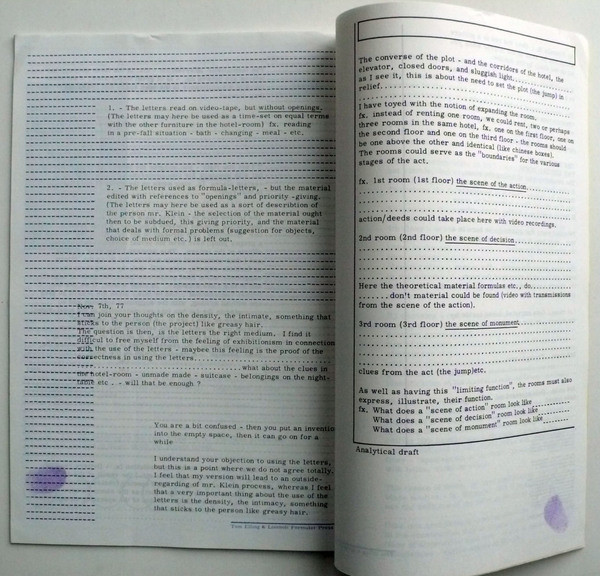 1. - The letters read on video-tape, but without openings.
(The letters may here be used as a time-set on equal terms
with the other furniture in the hotel-room) fx. reading
in a pre-fall situation - bath - changing - meal - etc.
2. - The letters used as formula-letters, - but the material
edited with references to "openings" and priority -giving.
(The letters may here be used as a sort of describtion of
the person mr. Klein - the selection of the material ought
then to be subdued, this giving priority, and the material
that deals with formal problems (suggestion for objects,
choice of medium etc.) is left out.
Nov. 7th, 77
I can join your thoughts on the density, the intimate, something that
sticks to the person (the project) like greasy hair.
The question is then, is the letters the right medium. I find it
difficul to free myself from the feeling of exhibitionism in connection
with the use of the letters - maybe this feeling is the proof of the
correctness in using the letters.
what about the clues in
the hotel-room - unmade made - suitcase - belongings on the night-
table etc. . - will that be enough ?
You are a bit confused - then you put an invention
into the empty space, then it can go on fur a
while
I understand your objection to using the letters,
but this is a point where we do not agree totally.
I feel that my version will lead to an outside-
regarding of mr. Klein process, whereas I feel
that a very important thing about the use of the
letters is the density, the intimacy, something
that sticks to the person like greasy hair.
The converse of the plot - and the corridors of the hotel, the
elevator, closed doors, and sluggish light,
as I see it, this is about the need to set the plot (the jump) in
relief.
I have toyed with the notion of expanding the room.
fx. instead of renting one room, we could rent, two or perhaps
three rooms in the same hotel, fx. one on the first floor, one on
the second floor and one on the third floor - the rooms should
be one above the other and identical (like chinese boxes).
The rooms could serve as the "boundaries" for the various
stages of the act.
fx. 1st room (1st floor) the scene of the action
action/deeds could take place here with video recordings.
2nd room (2nd floor) the scene of decision
Here the theoretical material formulas etc., do.
.......don't material could be found (video with transmissions
from the scene of the action).
3rd room (3rd floor) the scene of monument
clues from the act (the jump)etc.
As well as having this "limiting function", the rooms must also
express, illustrate, their function.
fx. What does a "scene of action" room look like
What does a "scene of decision" room look like
What does a "scene of monument" room look like
Analytical draft